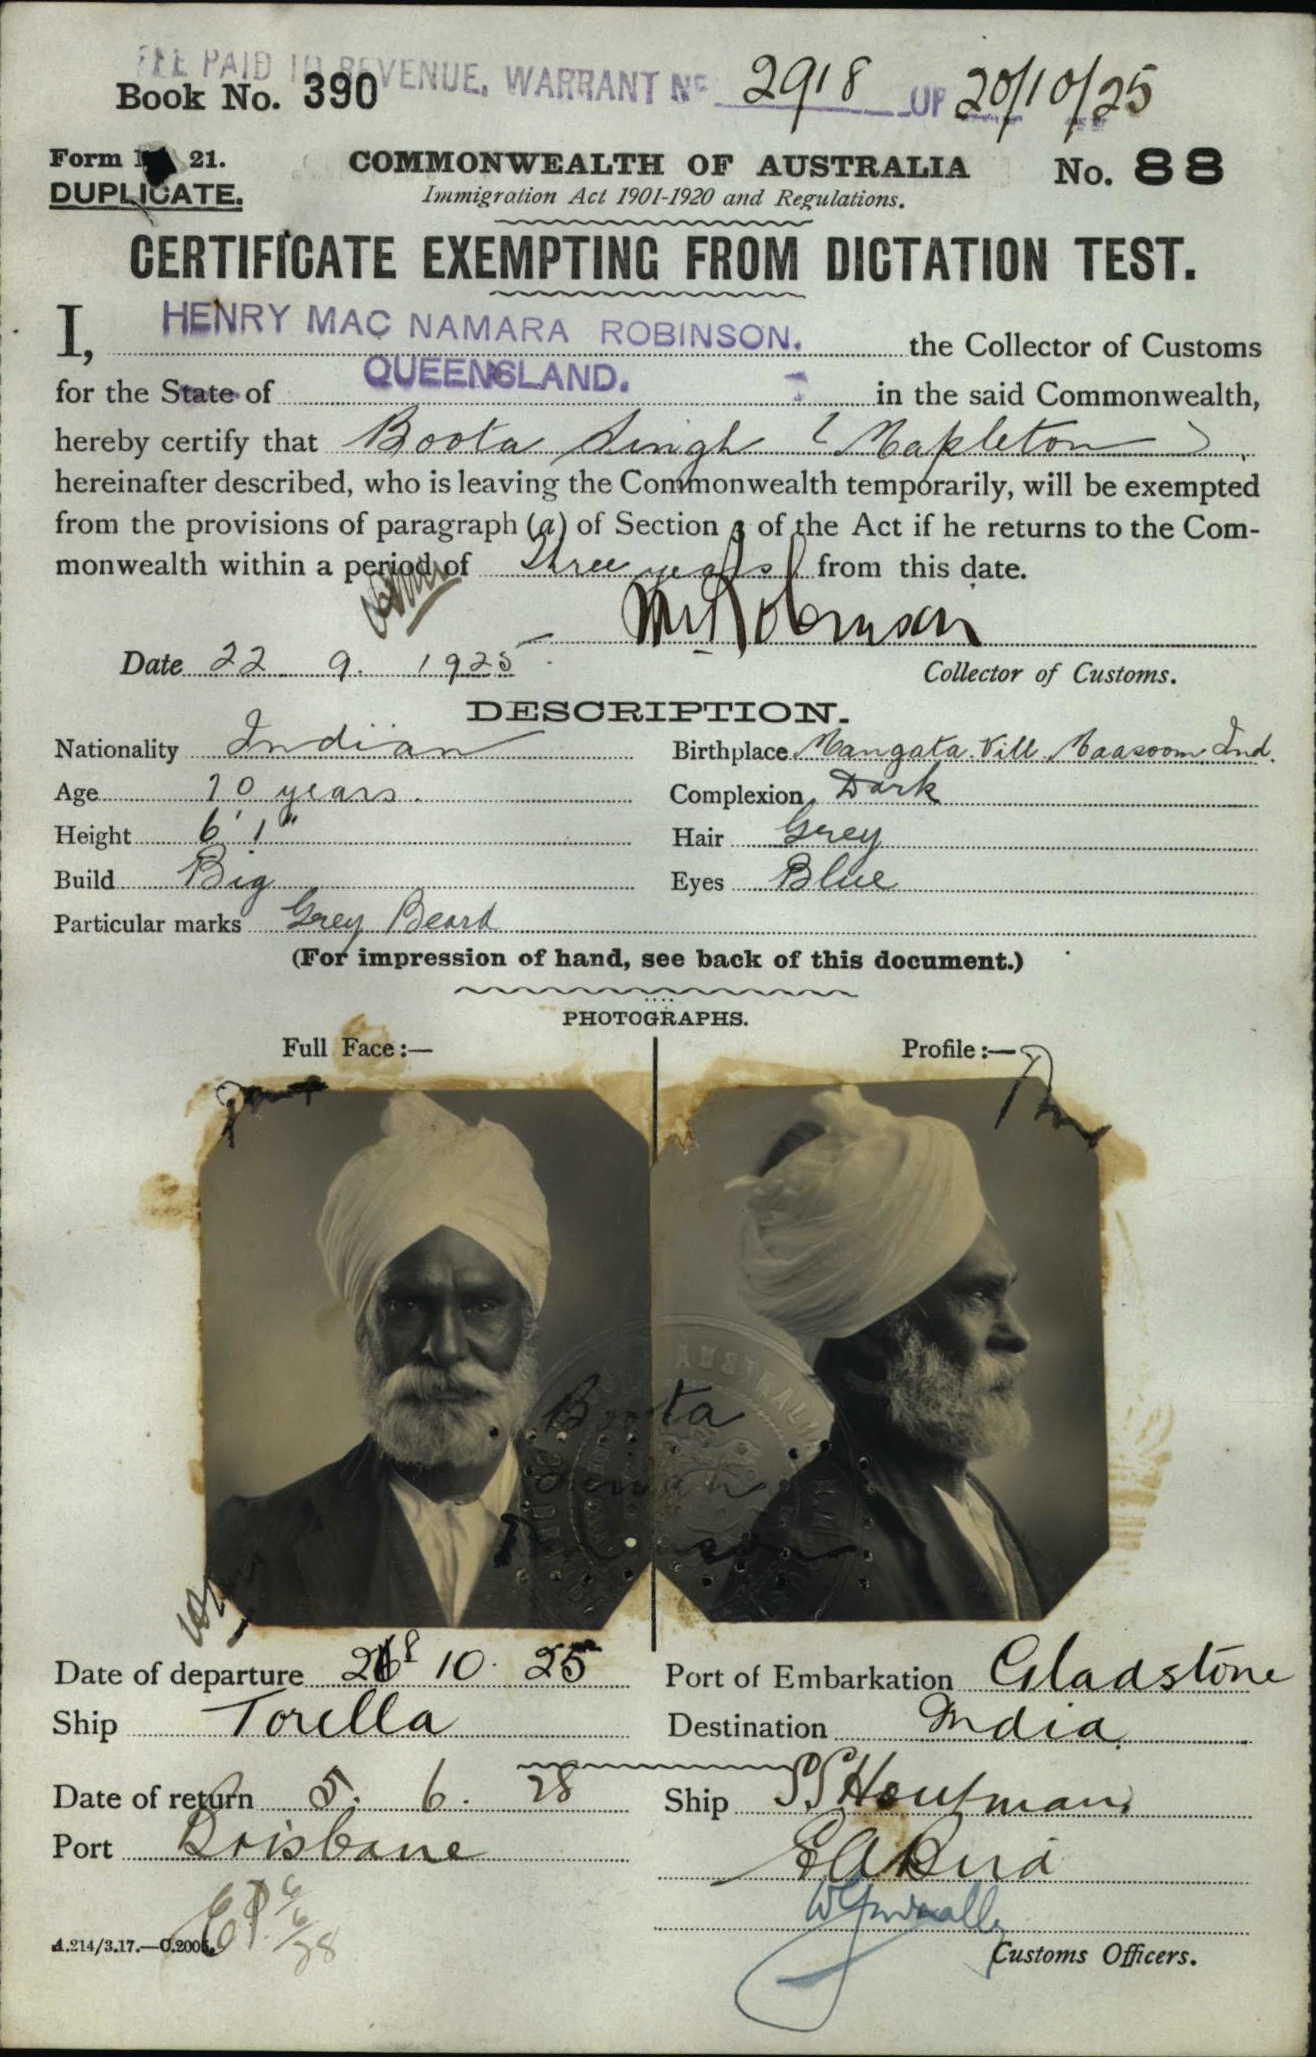 FEE PAID TO REVENUE, WARRANT No 2918 OF 20/10/25
Book No. 390
Form 21.
DUPLICATE.
COMMONWEALTH OF AUSTRALIA
No. 88
Immigration Act 1901-1920 and Regulations.
CERTIFICATE EXEMPTING FROM DICTATION TEST.
I, HENRY MAC NAMARA ROBINSON. the Collector of Customs
for the State of QUEENSLAND. in the said Commonwealth,
hereby certify that Boota Singh (Mapleton)
hereinafter described, who is leaving the Commonwealth temporarily, will be exempted
from the provisions of paragraph (a) of Section 3 of the Act if he returns to the Com-
monwealth within a period of three years from this date.
Robinson
Date 22 9. 1925
Collector of Customs.
DESCRIPTION.
Nationality Indian
Birthplace Mangata Vill Ind.
Age 70 years.
Complexion Dark
Height 6' 1"
Hair Grey
Build Big
Eyes Blue
Particular marks Grey Beard
(For impression of hand, see back of this document.)
PHOTOGRAPHS.
Full Face:—
Profile:—
Boota
Singh
Date of departure 10. 25
Port of Embarkation Gladstone
Ship Torilla
Destination India
Date of return 5. 6. 28
Ship SS Houtman
Port Brisbane
A.214/3.17.—C.2005.
Customs Officers.